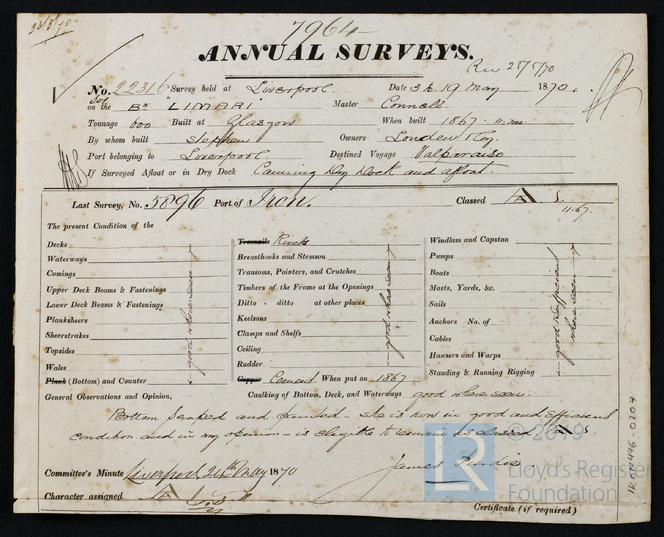 23/5/70
7964
ANNUAL SURVEYS.
Rec 25/5/70
No. 22316 Survey held at Liverpool Date 3 & 19 May 1870.
on the Bk "LIMARI" Master Connell
Tonnage 600 Built at Glasgow When built 1867. 11 mo
By whom built Stephen Owners London Roy.
Port belonging to Liverpool Destined Voyage Valparaiso
If Surveyed Afloat or in Dry Dock Canning Dry Dock and afloat
Last Survey, No. 5896 Port of Iron. Classed A
11.67.
The present Condition of the
Decks
Waterways
Comings
Upper Deck Beams & Fastenings
Lower Deck Beams & Fastenings
Planksheers
Sheerstrakes
Topsides
Wales
Plank (Bottom) and Counter
good where seen
Treenails Rivets
Breasthooks and Stemson
Transoms, Pointers, and Crutches
Timbers of the Frame at the Openings
Ditto - ditto at other places
Keelsons
Clamps and Shelfs
Ceiling
Rudder
Copper Cement When put on 1867
good where seen
Windlass and Capstan
Pumps
Boats
Masts, Yards, &c.
Sails
Anchors No. of
Cables
Hawsers and Warps
Standing & Running Rigging
good & efficient
where seen
General Observations and Opinion, Caulking of Bottom, Deck, and Waterways good where seen.
Bottom scraped and painted. She is now in good and efficient
condition and in my opinion is eligible to remain as classed A
James Purdie
Committee's Minute Liverpool 24th May 1870
Character assigned A
Certificate (if required)
LR © 2019
Lloyd's Register
Foundation